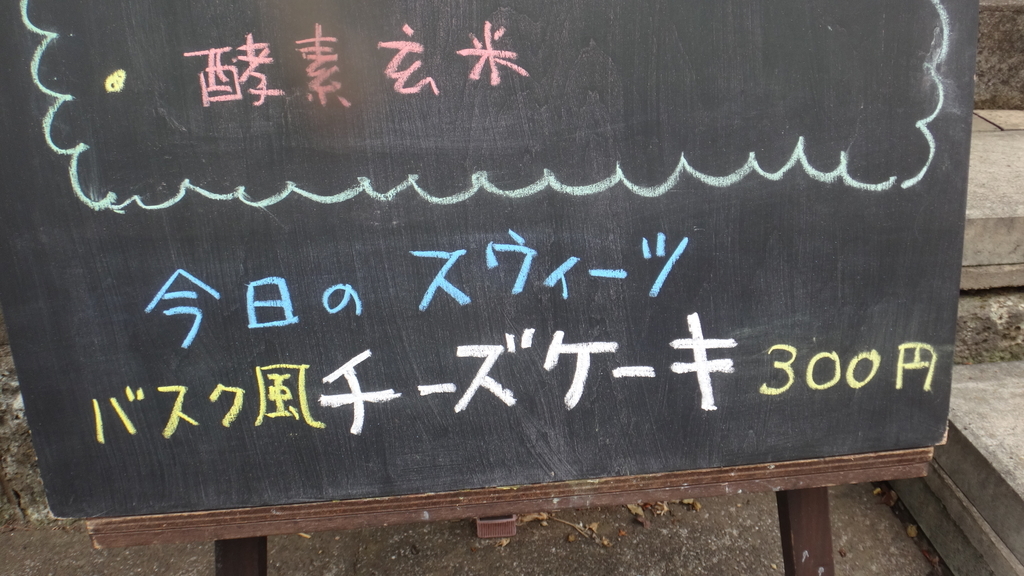 ・酵素玄米
今日のスウィーツ
バスク風チーズケーキ 300円